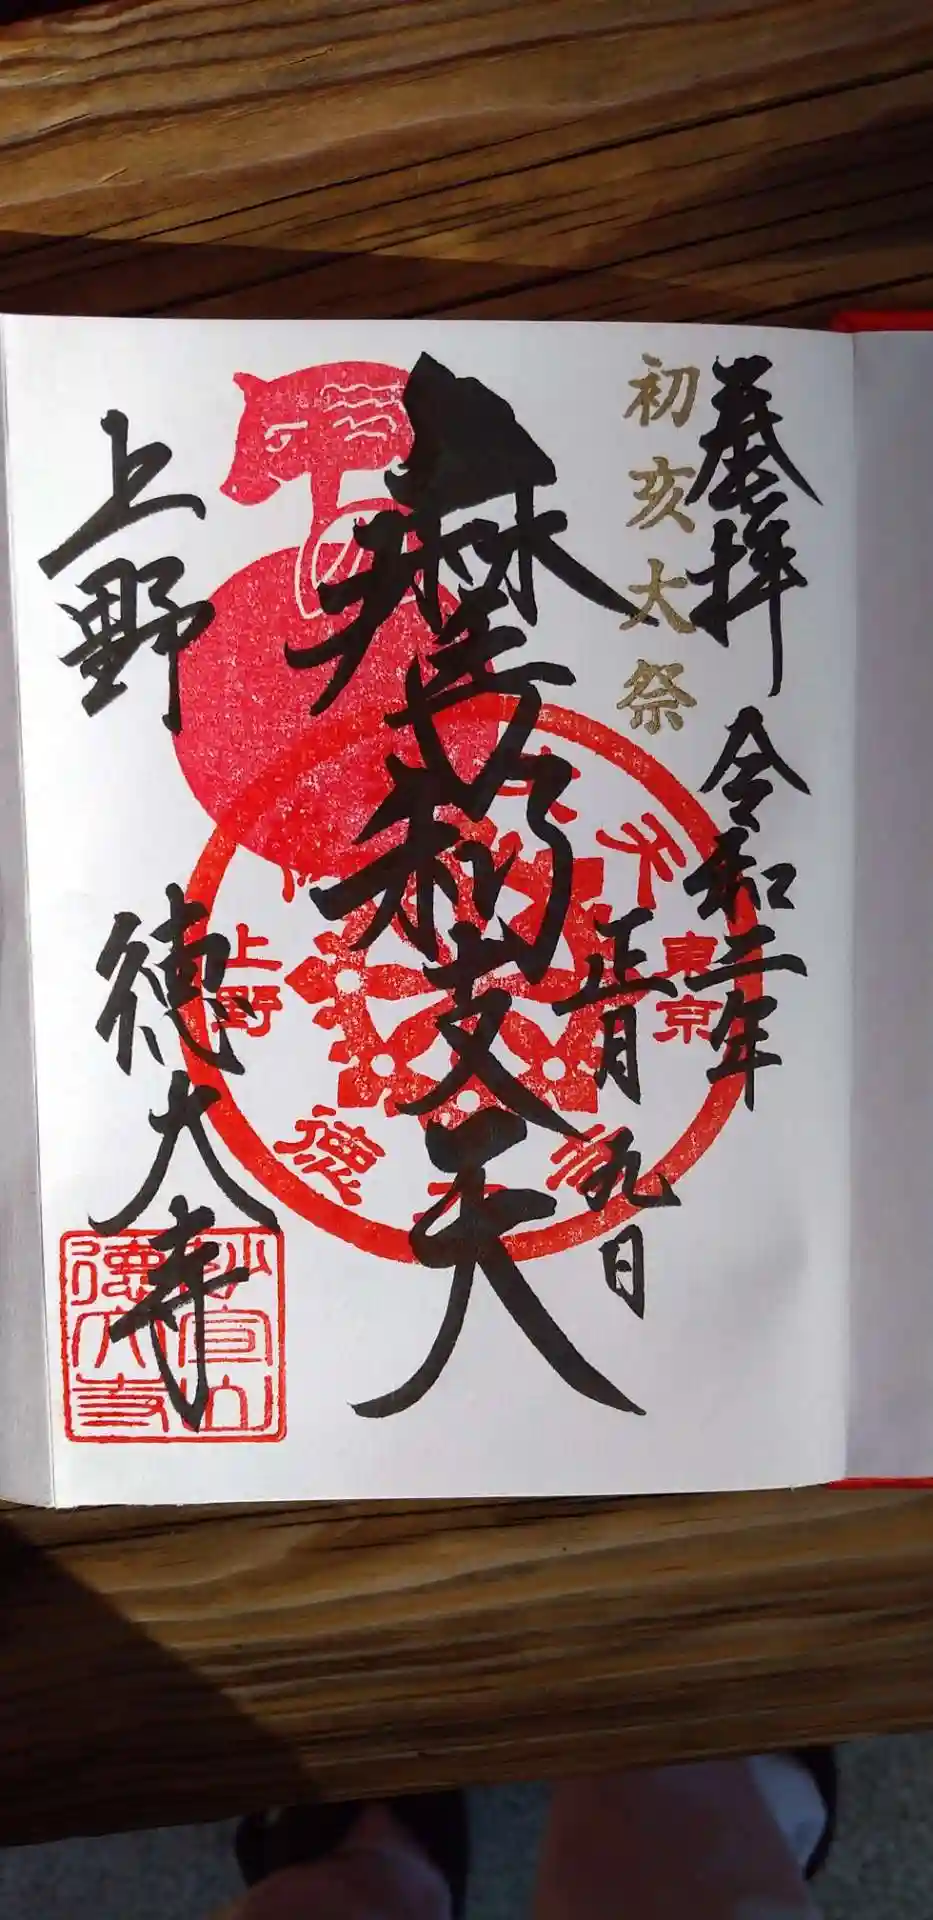 奉拝
令和二年
初亥大祭
正月九日
摩利支天
上野
徳大寺
天
東京
上野
德
妙宣山
德大寺